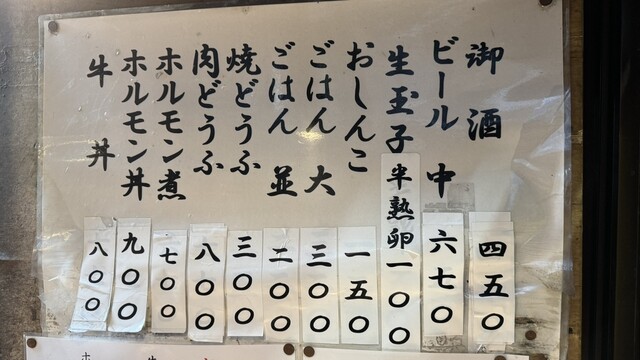 御酒 四五〇
ビール 中 六七〇
生玉子 半熟卵 一〇〇
おしんこ 一五〇
ごはん 大 三〇〇
ごはん 並 二〇〇
焼どうふ 三〇〇
肉どうふ 八〇〇
ホルモン煮 七〇〇
ホルモン丼 九〇〇
牛丼 八〇〇